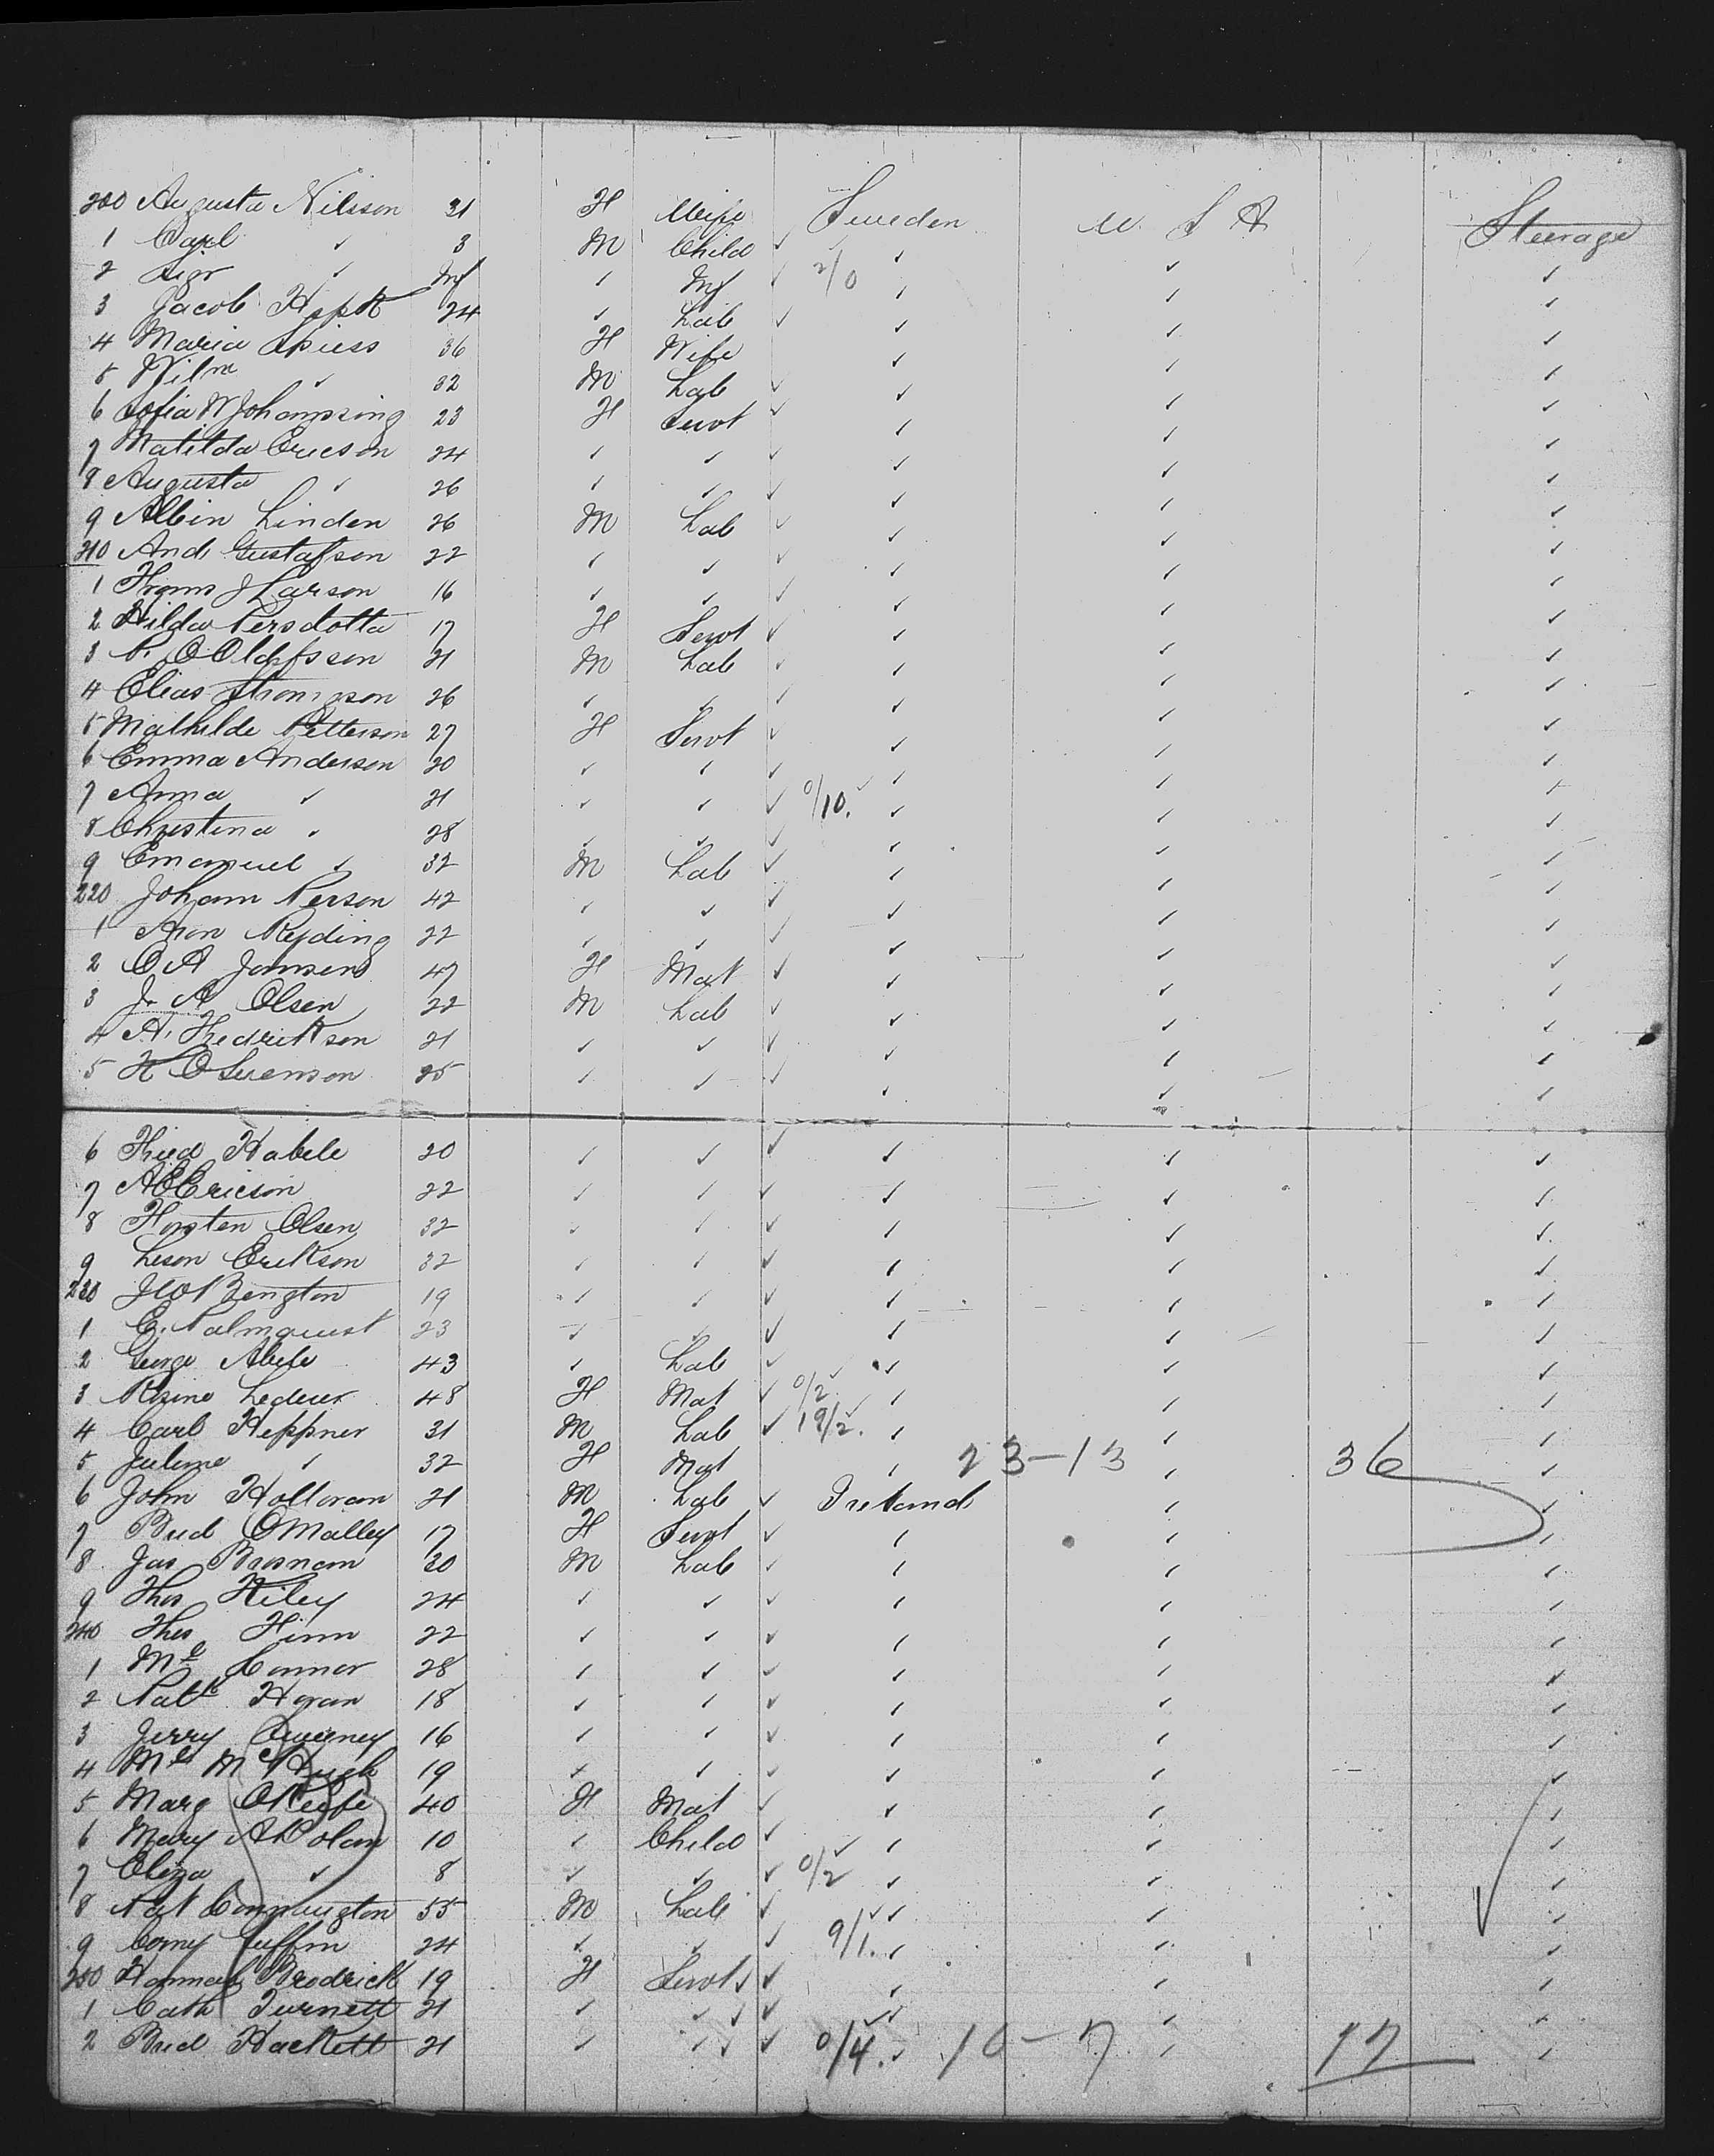 200 Augusta Nilsson 31 H Wife Sweden U S A Steerage
1 Carl ✓ 3 M Child ✓ ✓ ✓ ✓
2 Sigr ✓ Inf ✓ Inf ✓ 2/0 ✓ ✓ ✓
3 Jacob 24 ✓ Lab ✓ ✓ ✓ ✓
4 Maria Spiess 36 H Wife ✓ ✓ ✓
5 Wilm ✓ 32 M Lab ✓ ✓ ✓ ✓
6 Sofia W 23 H Servt ✓ ✓ ✓ ✓
7 Matilda Ericson 24 ✓ ✓ ✓ ✓ ✓ ✓
8 Augusta ✓ 26 ✓ ✓ ✓ ✓ ✓ ✓
9 Albin Linden 26 M Lab ✓ ✓ ✓ ✓
210 And Gustafson 22 ✓ ✓ ✓ ✓ ✓ ✓
1 Frans J Larson 16 ✓ ✓ ✓ ✓ ✓ ✓
2 Hilda Persdotta 17 H Servt ✓ ✓ ✓ ✓
3 P. O 21 M Lab ✓ ✓ ✓ ✓
4 Elias 26 ✓ ✓ ✓ ✓ ✓ ✓
5 Mathilde Petterson 27 H Servt ✓ ✓ ✓ ✓
6 Emma Anderson 20 ✓ ✓ ✓ ✓ ✓ ✓
7 Anna ✓ 21 ✓ ✓ ✓ 0/10. ✓ ✓ ✓
8 Christina ✓ 28 ✓ ✓ ✓ ✓ ✓ ✓
9 Emanuel ✓ 32 M Lab ✓ ✓ ✓ ✓
220 Johann Person 42 ✓ ✓ ✓ ✓ ✓ ✓
1 Aron Ryding 22 ✓ ✓ ✓ ✓ ✓ ✓
2 C A Jansens 47 H Mat ✓ ✓ ✓ ✓
3 J. A Olsen 22 M Lab ✓ ✓ ✓ ✓
4 A. Fredrikson 21 ✓ ✓ ✓ ✓ ✓ ✓
5 K O Swenson 25 ✓ ✓ ✓ ✓ ✓ ✓
6 Fried Habele 20 ✓ ✓ ✓ ✓ ✓ ✓
7 A E Ericson 22 ✓ ✓ ✓ ✓ ✓ ✓
8 Torsten Olsen 32 ✓ ✓ ✓ ✓ ✓ ✓
9 Leson Erikson 32 ✓ ✓ ✓ ✓ ✓ ✓
230 Bengton 19 ✓ ✓ ✓ ✓ ✓ ✓
1 C. Palmquist 23 ✓ ✓ ✓ ✓ ✓ ✓
2 George Abele 43 ✓ Lab ✓ ✓ ✓ ✓
3 Rosine Lederer 48 H Mat ✓ 0/2 ✓ ✓ ✓
4 Carl Heppner 31 M Lab ✓ 19/2. ✓ ✓ ✓
5 Juliane ✓ 32 H Mat ✓ 23-13 ✓ 36 ✓
6 John Holloran 21 M Lab ✓ Ireland ✓ ✓
7 Brid OMalley 17 H Servt ✓ ✓ ✓ ✓
8 Jas Brosnam 20 M Lab ✓ ✓ ✓ ✓
9 Thos Kiley 24 ✓ ✓ ✓ ✓ ✓ ✓
240 Thos Finn 22 ✓ ✓ ✓ ✓ ✓ ✓
1 Ml Connor 28 ✓ ✓ ✓ ✓ ✓ ✓
2 Patk Horan 18 ✓ ✓ ✓ ✓ ✓ ✓
3 Jerry Sweeney 16 ✓ ✓ ✓ ✓ ✓ ✓
4 Ml McHugh 19 ✓ ✓ ✓ ✓ ✓ ✓
5 Marg OKeefe 40 H Mat ✓ ✓ ✓ ✓
6 Mary A Dolan 10 ✓ Child ✓ ✓ ✓ ✓
7 Eliza ✓ 8 ✓ ✓ ✓ 0/2 ✓ ✓ ✓
8 Pat 55 M Lab ✓ ✓ ✓ ✓
9 24 ✓ ✓ ✓ 9/1. ✓ ✓ ✓
250 Hannah Brodrick 19 H Servt ✓ ✓ ✓ ✓
1 Cath 21 ✓ ✓ ✓ ✓ ✓ ✓
2 Brid Hackett 21 ✓ ✓ ✓ 0/4. ✓ 10-7 ✓ 17 ✓